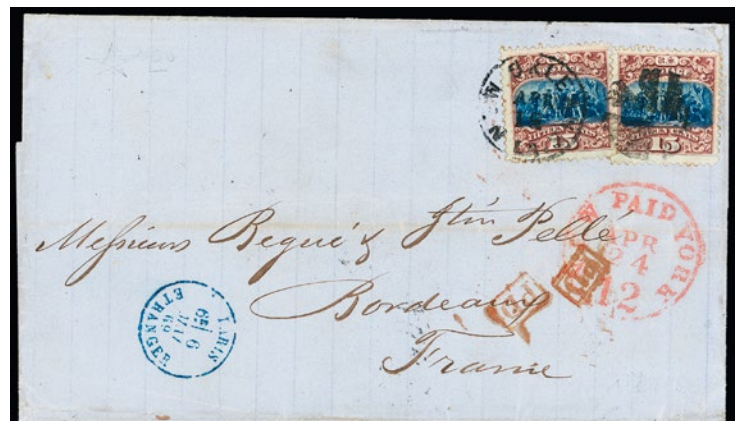 FIFTEEN CENTS
15
15
PAID
YORK
APR
24
12
Messieurs Begué & Jtin Pellé
Bordeaux
France
PD
PD
PARIS
6E
6
MAI
69
ETRANGER